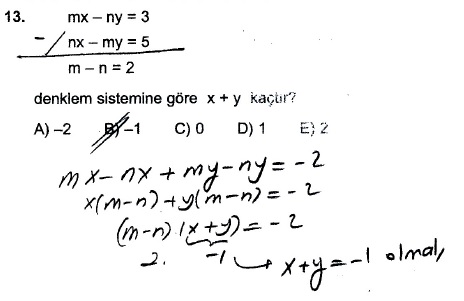 13. mx – ny = 3
– / nx – my = 5
m – n = 2
denklem sistemine göre x + y kaçtır?
A) –2 B) –1 C) 0 D) 1 E) 2
mx–nx+my–ny=–2
x(m–n)+y(m–n)=–2
(m–n)(x+y)=–2
2. –1 → x+y=–1 olmalı